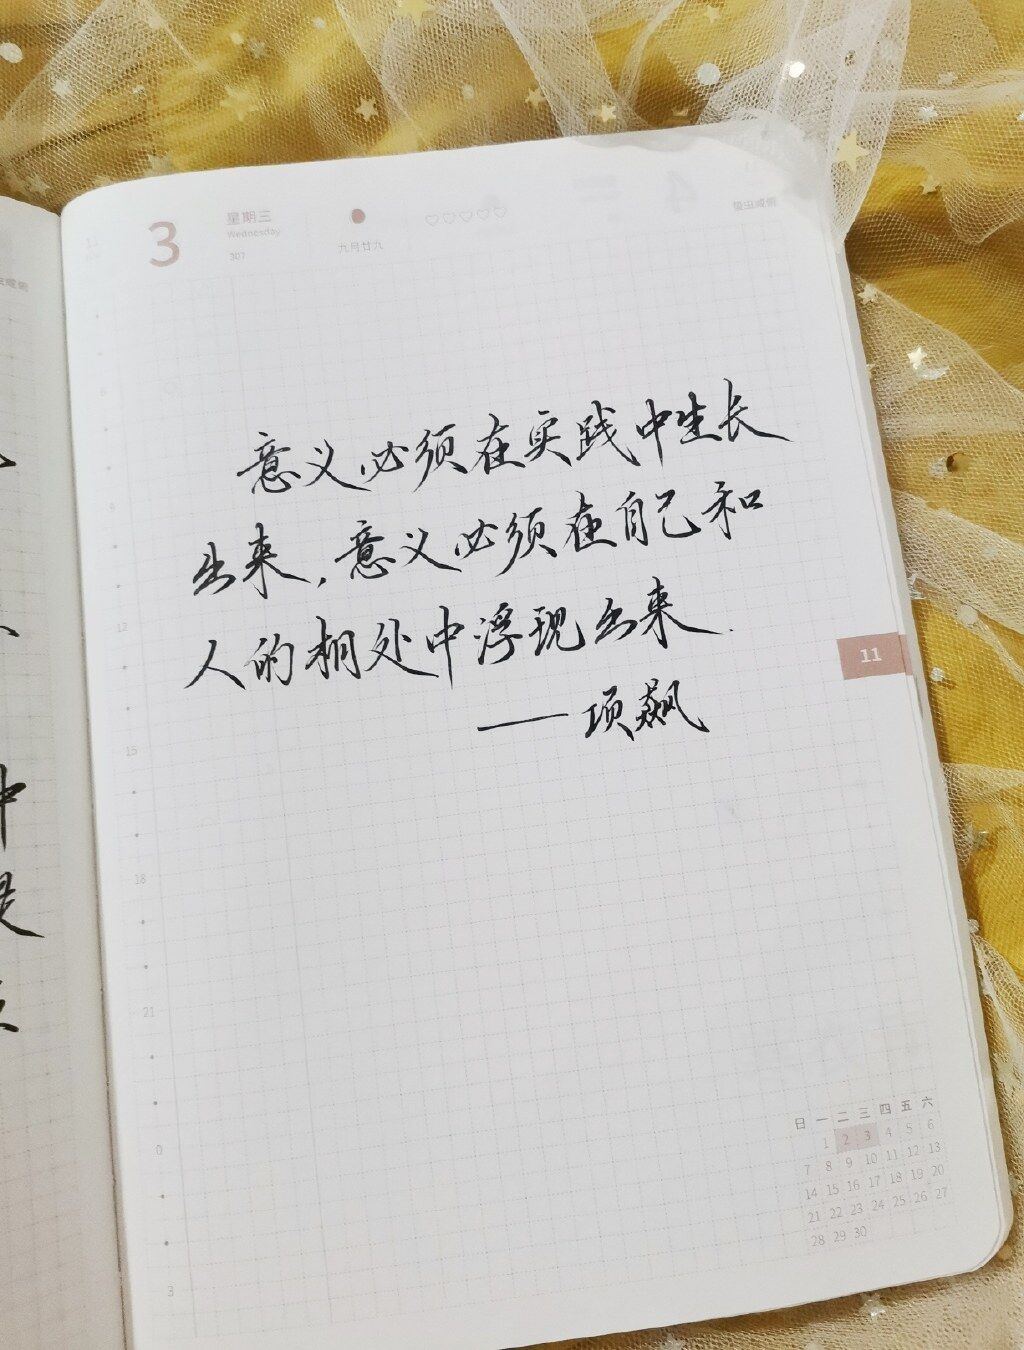 3
星期三
Wednesday
307
九月廿九
意义必须在实践中生长
出来,意义必须在自己和
人的相处中浮现出来.
——项飙
11
12
15
18
21
0
3
日 一 二 三 四 五 六
1 2 3 4 5 6
7 8 9 10 11 12 13
14 15 16 17 18 19 20
21 22 23 24 25 26 27
28 29 30